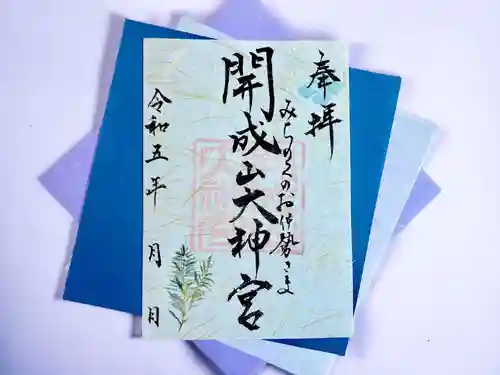 奉拝
みちのくのお伊勢さま
開成山大神宮
令和五年 月 日